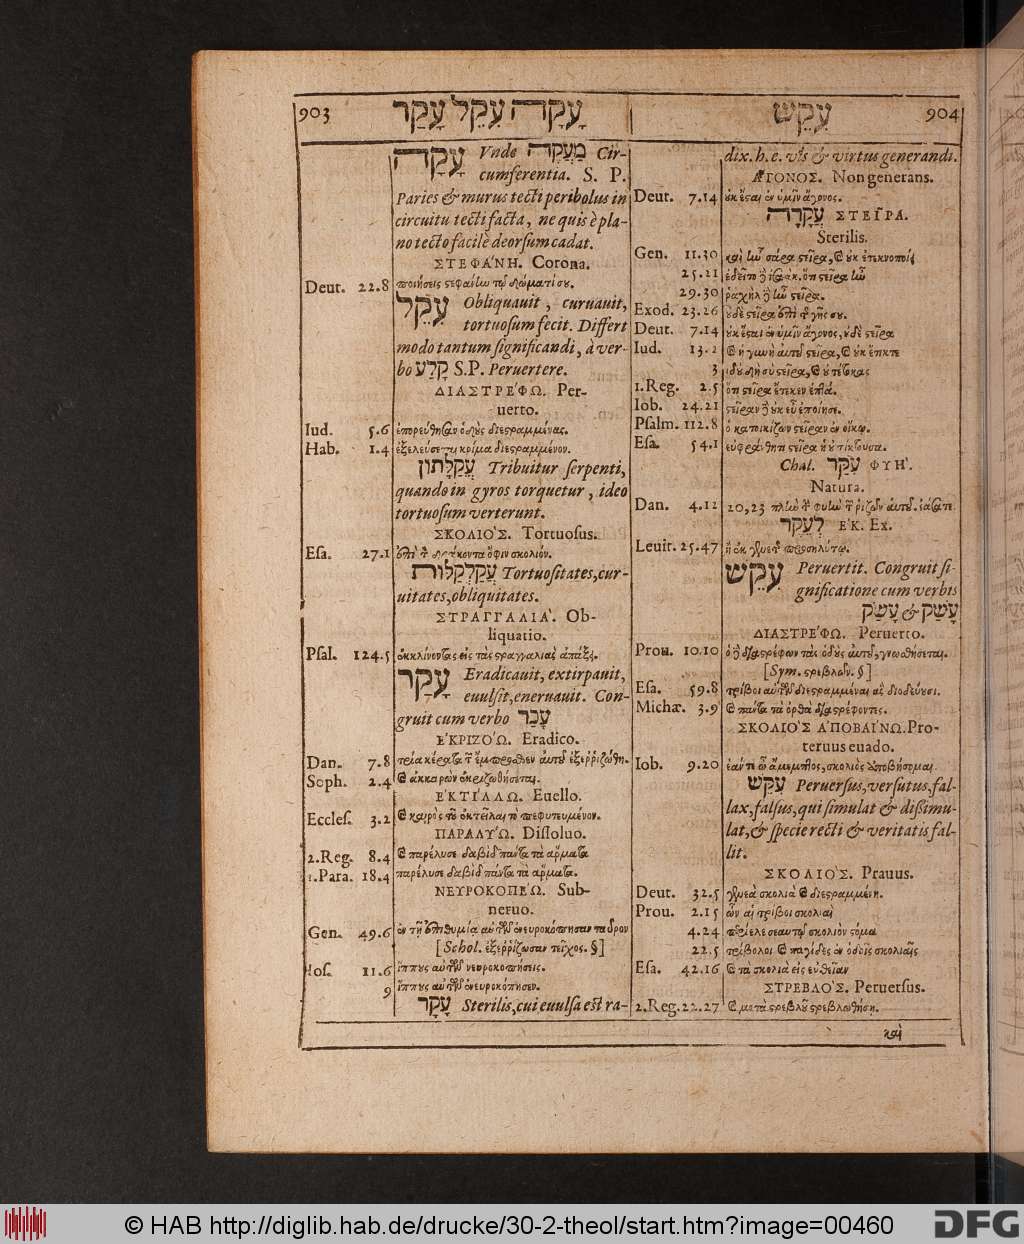 903 עָקָה עִקֵל עָקַר
עִקֵּשׁ 904
עָקָה Vnde מַעֲקֶה Cir-
cumferentia. S. P.
Paries & murus tecti peribolus in
circuitu tecti facta, ne quis è pla-
no tecto facilè deorsum cadat.
ΣΤΕΦΆΝΗ. Corona.
Deut. 22.8 ποιήσεις στεφάνην τῷ δώματί σου.
עִקֵל Obliquauit, curuauit,
tortuosum fecit. Differt
modo tantum significandi, à ver-
bo קָלַע S.P. Peruertere.
ΔΙΑΣΤΡΈΦΩ. Per-
uerto.
Iud. 5.6 ἐπορεύθησαν ὁδοὺς διεστραμμένας.
Hab. 1.4 ἐξελεύσεται κρίμα διεστραμμένον.
עֲקַלָּתוֹן Tribuitur serpenti,
quando in gyros torquetur, ideo
tortuosum verterunt.
ΣΚΟΛΙΌΣ. Tortuosus.
Esa. 27.1 ἐπὶ τὸν δράκοντα ὄφιν σκολιόν.
עֲקַלְקַלּוֹת Tortuositates, cur-
uitates, obliquitates.
ΣΤΡΑΓΓΑΛΙΆ. Ob-
liquatio.
Psal. 124.5 ἐκκλίνοντας εἰς τὰς στραγγαλιὰς ἀπάξει.
עָקַר Eradicauit, extirpauit,
euulsit, eneruauit. Con-
gruit cum verbo עָכַר
ἘΚΡΙΖΌΩ. Eradico.
Dan. 7.8 τρία κέρατα τῶν ἔμπροσθεν αὐτοῦ ἐξερριζώθη.
Soph. 2.4 καὶ ἀκκαρὼν ἐκριζωθήσεται.
ἘΚΤΊΛΛΩ. Euello.
Eccles. 3.2 καὶ καιρὸς τοῦ ἐκτεῖλαι τὸ πεφυτευμένον.
ΠΑΡΑΛΎΩ. Dissoluo.
2.Reg. 8.4 καὶ παρέλυσε δαβὶδ πάντα τὰ ἅρματα
1.Para. 18.4 παρέλυσε δαβὶδ πάντα τὰ ἅρματα.
ΝΕΥΡΟΚΟΠΈΩ. Sub-
neruo.
Gen. 49.6 ἐν τῇ ἐπιθυμίᾳ αὐτῶν ἐνευροκόπησαν ταῦρον
[Schol. ἐξερρίζωσαν τεῖχος. §]
Ios. 11.6 ἵππους αὐτῶν νευροκοπήσεις.
9 ἵππους αὐτῶν ἐνευροκόπησεν.
עָקָר Sterilis, cui euulsa est ra-
dix. h. e. vis & virtus generandi.
ἌΓΟΝΟΣ. Non generans.
Deut. 7.14 οὐκ ἔσται ἐν ὑμῖν ἄγονος.
עֲקָרָה ΣΤΕΙ͂ΡΑ.
Sterilis.
Gen. 11.30 καὶ ἦν σάρα στεῖρα, καὶ οὐκ ἐτεκνοποίει
25.21 ἐδεῖτο δὲ ἰσαὰκ. ὅτι στεῖρα ἦν
29.30 ῥαχὴλ δὲ ἦν στεῖρα.
Exod. 23.26 οὐδὲ στεῖρα ἐπὶ τῆς γῆς σου.
Deut. 7.14 οὐκ ἔσται ἐν ὑμῖν ἄγονος, οὐδὲ στεῖρα
Iud. 13.2 καὶ ἡ γυνὴ αὐτοῦ στεῖρα, καὶ οὐκ ἔτικτε
3 ἰδοὺ δὴ σὺ στεῖρα, καὶ οὐ τέτοκας
1.Reg. 2.5 ὅτι στεῖρα ἔτεκεν ἑπτά.
Iob. 24.21 στεῖραν δὲ οὐκ εὖ ἐποίησε.
Psalm. 112.8 ὁ κατοικίζων στεῖραν ἐν οἴκῳ.
Esa. 54.1 εὐφράνθητι στεῖρα ἡ οὐ τίκτουσα.
Chal. עִקַּר ΦΥΉ.
Natura.
Dan. 4.12 20,23 πλὴν τὴν φυὴν τῶν ῥιζῶν αὐτοῦ. ἐάσατε.
לְעֵקֶר ἘΚ. Ex.
Leuit. 25.47 ἢ ἐκ γενετῆς προσηλύτῳ.
עִקֵּשׁ Peruertit. Congruit si-
gnificatione cum verbis
עָשַׁק & עָשַׂק
ΔΙΑΣΤΡΈΦΩ. Peruerto.
Prou. 10.10 ὁ δὲ διαστρέφων τὰς ὁδοὺς αὐτοῦ, γνωσθήσεται.
[Sym. στρεβλῶν. §]
Esa. 59.8 τρίβοι αὐτῶν διεστραμμέναι ἃς διοδεύουσι.
Michæ. 3.9 καὶ πάντα τὰ ὀρθὰ διαστρέφοντες.
ΣΚΟΛΙῸΣ ἈΠΟΒΑΊΝΩ. Pro-
teruus euado.
Iob. 9.20 ἐάν τε ὦ ἄμεμπτος, σκολιὸς ἀποβήσομαι.
עִקֵּשׁ Peruersus, versutus, fal-
lax, falsus, qui simulat & dissimu-
lat, & specie recti & veritatis fal-
lit.
ΣΚΟΛΙΌΣ. Prauus.
Deut. 32.5 γενεὰ σκολιὰ καὶ διεστραμμένη.
Prou. 2.15 ὧν αἱ τρίβοι σκολιαὶ
4.24 περίελε σεαυτοῦ σκολιὸν στόμα
22.5 τρίβολοι καὶ παγίδες ἐν ὁδοῖς σκολιαῖς
Esa. 42.16 καὶ τὰ σκολιὰ εἰς εὐθεῖαν
ΣΤΡΕΒΛΌΣ. Peruersus.
2.Reg. 22.27 καὶ μετὰ στρεβλοῦ στρεβλωθήσῃ.
καὶ
© HAB http://diglib.hab.de/drucke/30-2-theol/start.htm?image=00460
DFG